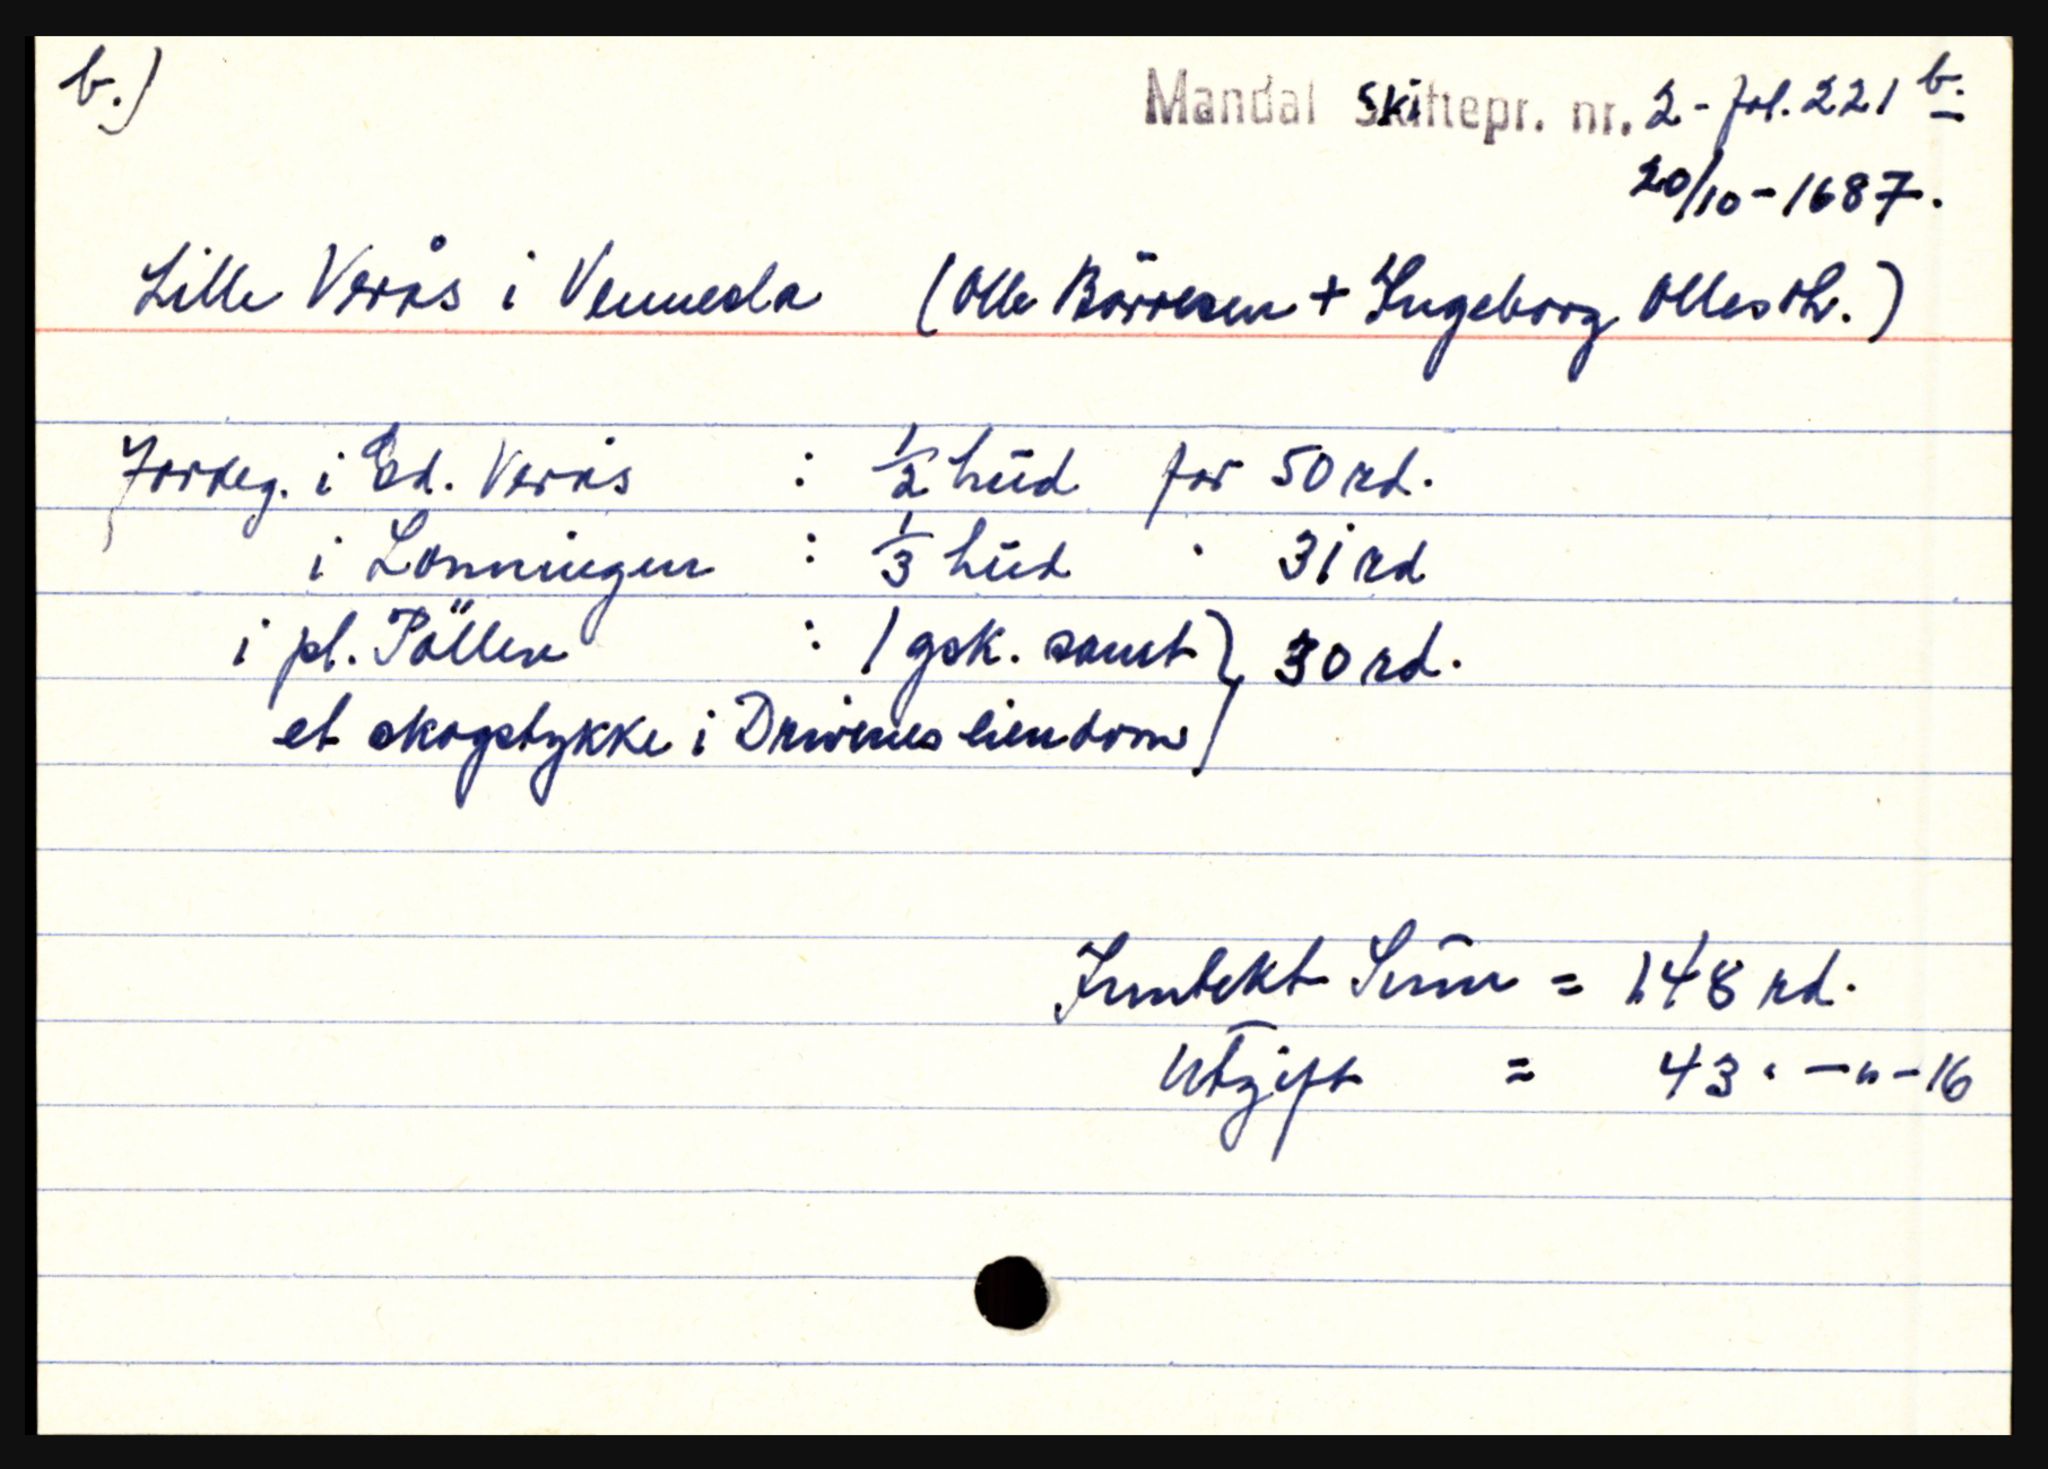 b.) Mandal Skiftepr. nr. 2 - fol. 221 b.
20/10 - 1687.
Lille Verås i Vennesla (Olle Börresen + Ingeborg Ollesdt.)
Jordeg. i Ød. Verås : 1/2 hud for 50 rd.
i Lonningen : 1/3 hud " 31 rd
i pl. Pöllen : 1 gsk. samt } 30 rd.
et skogstykke i Drivenes eiendom
Inntekt Sum = 148 rd.
Utgift = 43 " - " - 16